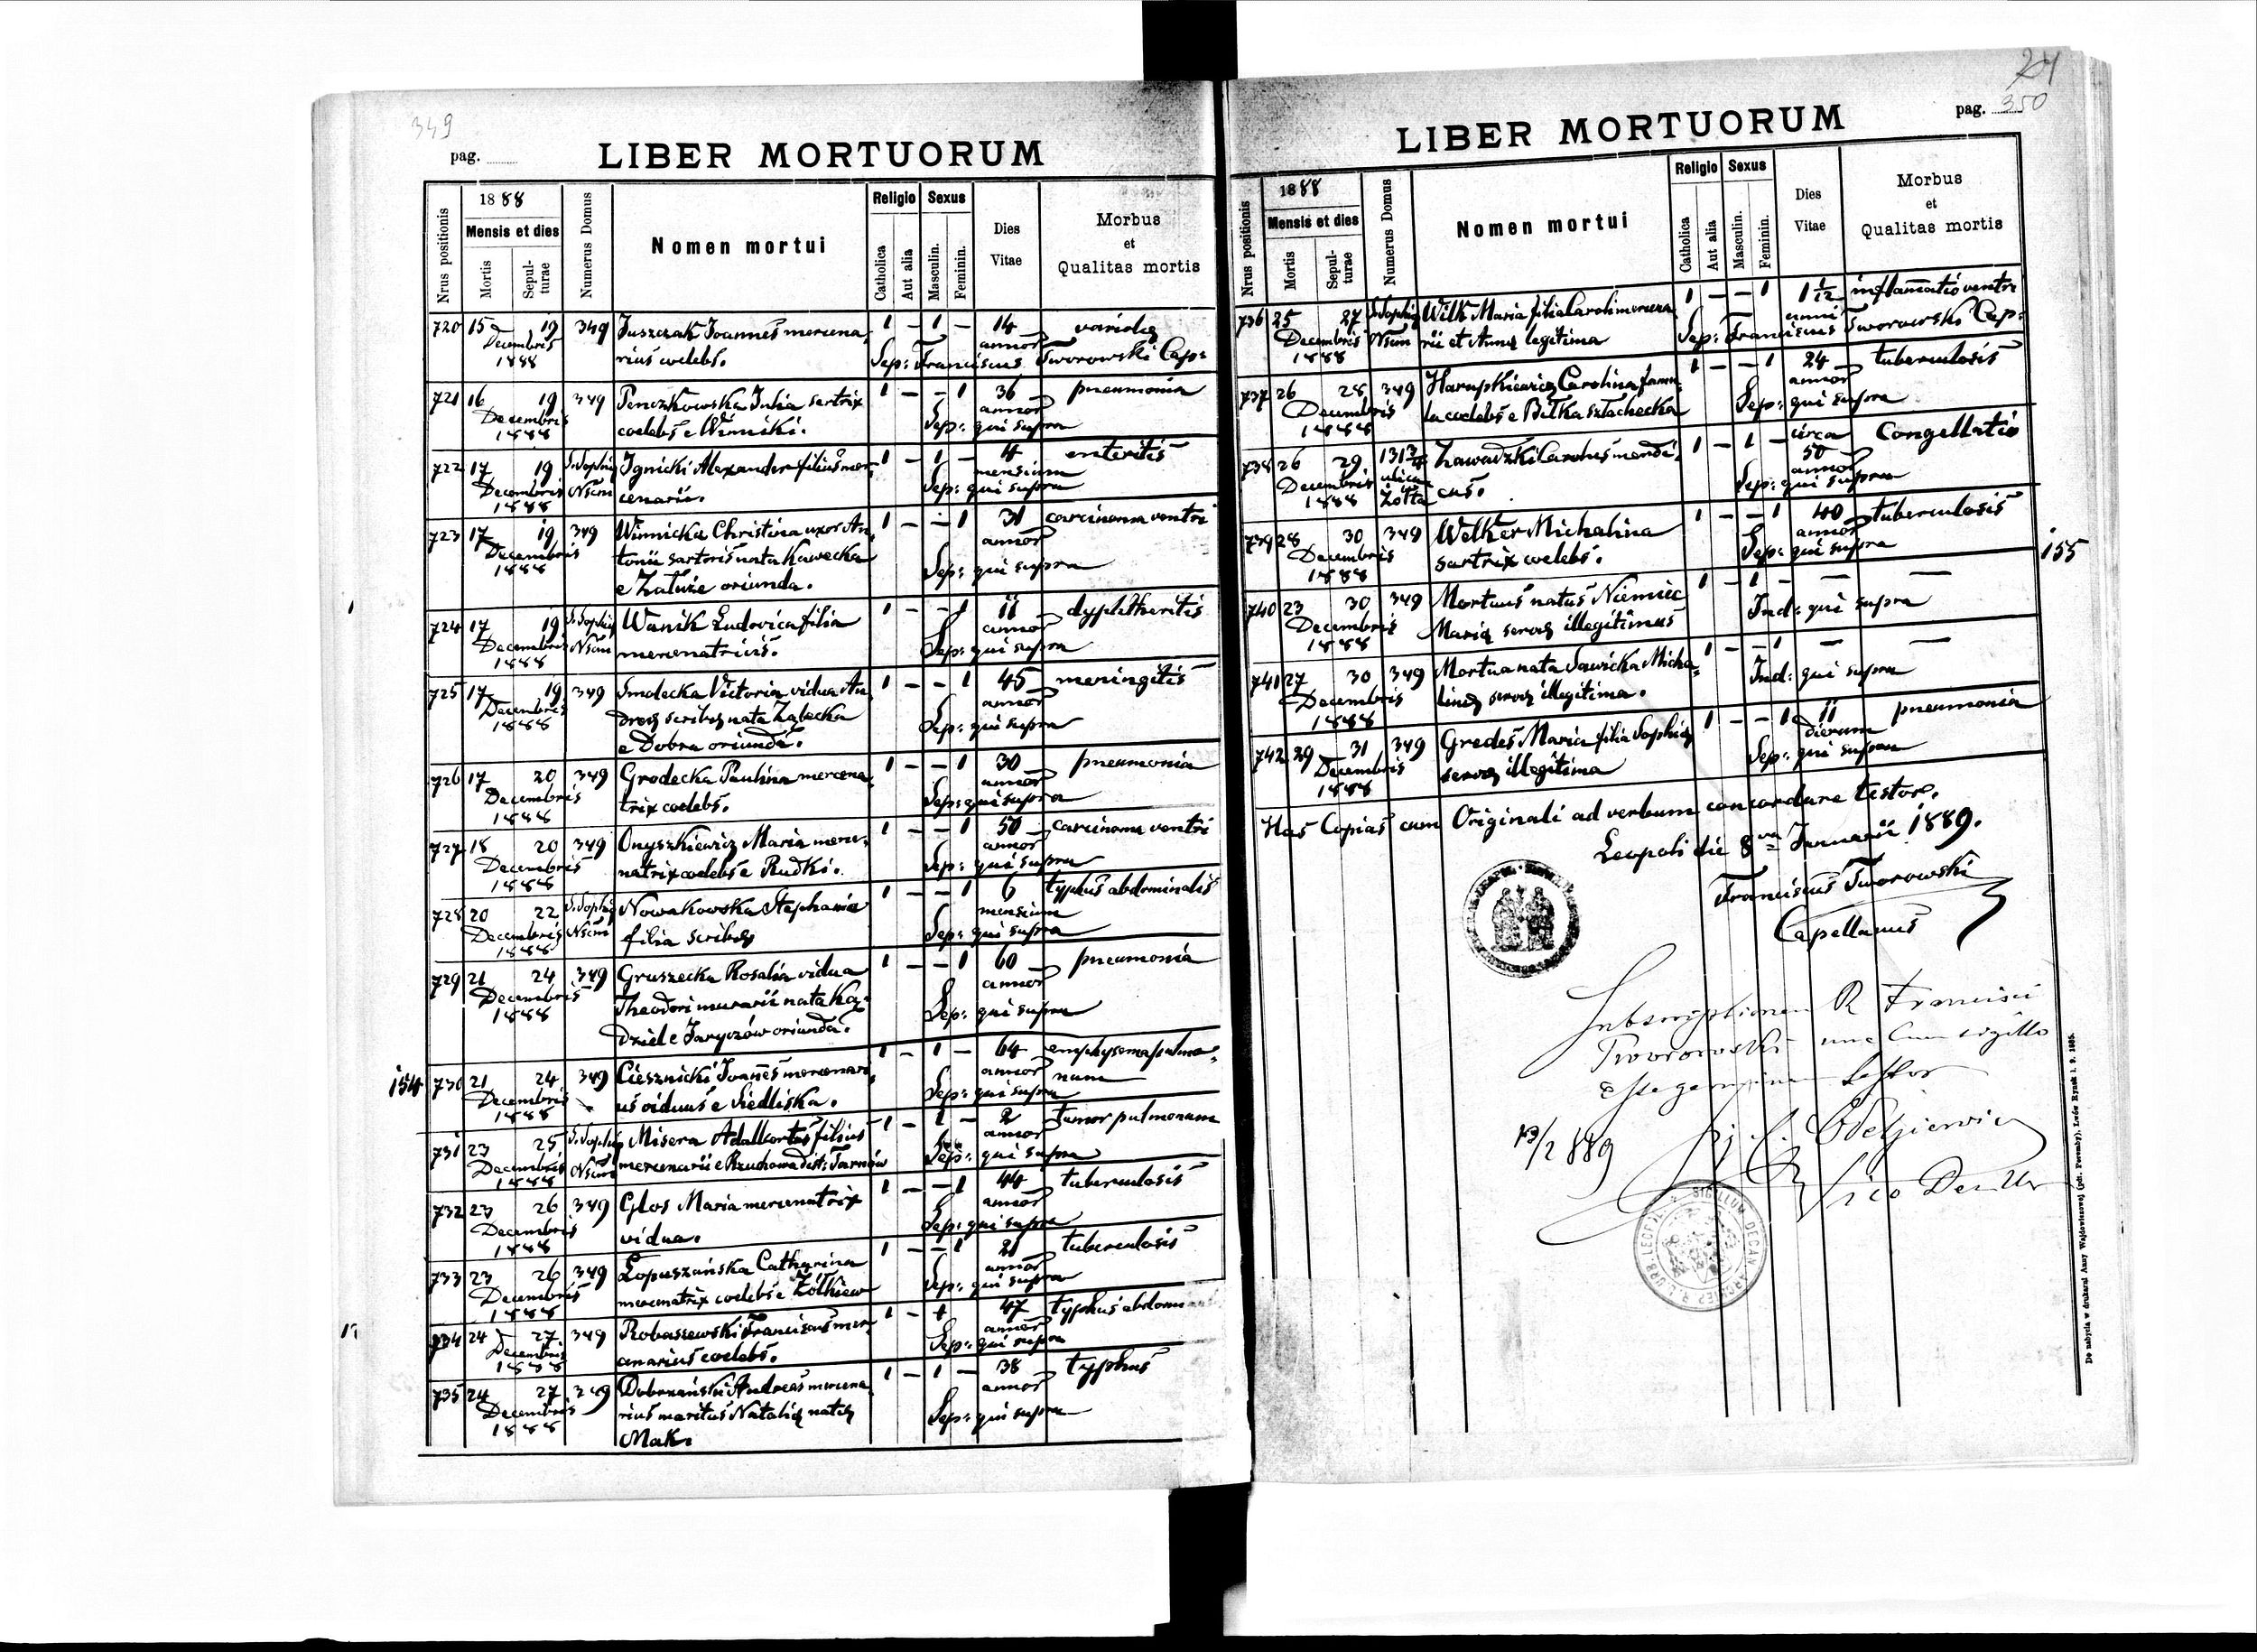 349
pag.
LIBER MORTUORUM
Nrus positionis
1888
Mensis et dies
Mortis
Sepul-
turae
Numerus Domus
Nomen mortui
Religio
Catholica
Aut alia
Sexus
Masculin.
Feminin.
Dies
Vitae
Morbus
et
Qualitas mortis
720 15 19 349 Juszczak Joannes mercena- 1 – 1 – 14 variolę
Decembris rius coelebs. annor
1888 Sep: Franciscus Tworowski Cap:
721 16 19 349 Penczkowska Julia sartrix 1 – – 1 36 pneumonia
Decembris coelebs e Winniki. annor
1888 Sep: qui supra
722 17 19 S. Sophię Ignicki Alexander filius mer- 1 – 1 – 4 enteritis
Decembris Nsum cenarii. mensium
1888 Sep: qui supra
723 17 19 349 Winnicka Christina uxor An- 1 – – 1 31 carcinoma ventri
Decembris tonii sartoris nata Kawecka annor
1888 e Załuże oriunda. Sep: qui supra
724 17 19 S. Sophię Wanik Ludovica filia 1 – – 1 11 dyphtheritis
Decembris Nsum mercenatricis. annor
1888 Sep: qui supra
725 17 19 349 Smolecka Victoria vidua An- 1 – – 1 45 meningitis
Decembris dreę scribę nata Załecka annor
1888 e Dobra oriunda. Sep: qui supra
726 17 20 349 Grodecka Paulina mercena- 1 – – 1 30 pneumonia
Decembris trix coelebs. annor
1888 Sep: qui supra
727 18 20 349 Onyszkiewicz Maria merce- 1 – – 1 50 carcinoma ventri
Decembris natrix coelebs e Rudki. annor
1888 Sep: qui supra
728 20 22 S. Sophię Nowakowska Stephania 1 – – 1 6 typhus abdominalis
Decembris Nsum filia scribę mensium
1888 Sep: qui supra
729 21 24 349 Gruszecka Rosalia vidua 1 – – 1 60 pneumonia
Decembris Theodori murarii nata Ką- annor
1888 dziel e Jaryczów oriunda. Sep: qui supra
154 730 21 24 349 Ciesznicki Joannes mercenari- 1 – 1 – 64 emphysema pulmo-
Decembris us viduus e Siedliska. annor num
1888 Sep: qui supra
731 23 25 S. Sophię Misera Adalbertus filius 1 – 1 – 2 tumor pulmonum
Decembris Nsum mercenarii e Rzuchowa dist: Tarnów annor
1888 Sep: qui supra
732 23 26 349 Głos Maria mercenatrix 1 – – 1 44 tuberculosis
Decembris vidua. annor
1888 Sep: qui supra
733 23 26 349 Łopuszańska Catharina 1 – – 1 21 tuberculosis
Decembris mercenatrix coelebs e Żółkiew annor
1888 Sep: qui supra
734 24 27 349 Robaszewski Franciscus mer- 1 – 1 47 typhus abdomi
Decembris cenarius coelebs. annor
1888 Sep: qui supra
735 24 27 349 Dobrzański Andreas mercena- 1 – 1 – 38 typhus
Decembris rius maritus Natalię natę annor
1888 Mak. Sep: qui supra
24
pag. 350
LIBER MORTUORUM
Nrus positionis
1888
Mensis et dies
Mortis
Sepul-
turae
Numerus Domus
Nomen mortui
Religio
Catholica
Aut alia
Sexus
Masculin.
Feminin.
Dies
Vitae
Morbus
et
Qualitas mortis
736 25 27 S. Sophię Wilk Maria filia Caroli mercena- 1 – – 1 1 1/12 inflamatio ventri
Decembris Nsum rii et Annę legitima anni
1888 Sep: Franciscus Tworowski Cap:
737 26 28 349 Harupkiewicz Carolina famu- 1 – – 1 24 tuberculosis
Decembris la coelebs e Biłka szlachecka annor
1888 Sep: qui supra
738 26 29 1313/4 Zawadzki Carolus mendi- 1 – 1 – circa Congellatio
Decembris ulica cus. 50 annor
1888 Żółta Sep: qui supra
739 28 30 349 Welker Michalina 1 – – 1 40 tuberculosis
Decembris sartrix coelebs. annor
1888 Sep: qui supra
155
740 23 30 349 Mortuus natus Niemiec 1 – 1 – — —
Decembris Marię servę illegitimus Ind: qui supra
1888
741 27 30 349 Mortua nata Sawicka Micha- 1 – – 1 — —
Decembris linę servę illegitima. Ind: qui supra
1888
742 29 31 349 Gredes Maria filia Sophię 1 – – 1 11 pneumonia
Decembris servę illegitima dierum
1888 Sep: qui supra
Has Copias cum Originali ad verbum concordare testor.
Leopoli die 8va Januarii 1889.
Franciscus Tworowski
Capellanus
Subscriptionem R Francisci
Tworowski una cum sigillo
esse genuinam testor
13/2 889
Vice Dec
SIGILLUM DECAN
De nabycia w drukarni Anny Wajdowiczowej (pdt. Poremby), Lwów Rynek l. 9. 1885.